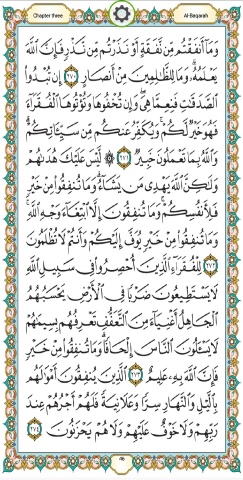 Chapter three
Al-Baqarah
وَمَآ أَنفَقْتُم مِّن نَّفَقَةٍ أَوْ نَذَرْتُم مِّن نَّذْرٍ فَإِنَّ ٱللَّهَ
يَعْلَمُهُۥ ۗ وَمَا لِلظَّٰلِمِينَ مِنْ أَنصَارٍ ٢٧٠ إِن تُبْدُوا۟
ٱلصَّدَقَٰتِ فَنِعِمَّا هِىَ ۖ وَإِن تُخْفُوهَا وَتُؤْتُوهَا ٱلْفُقَرَآءَ
فَهُوَ خَيْرٌ لَّكُمْ ۚ وَيُكَفِّرُ عَنكُم مِّن سَيِّـَٔاتِكُمْ ۗ
وَٱللَّهُ بِمَا تَعْمَلُونَ خَبِيرٌ ٢٧١ لَّيْسَ عَلَيْكَ هُدَىٰهُمْ
وَلَٰكِنَّ ٱللَّهَ يَهْدِى مَن يَشَآءُ ۗ وَمَا تُنفِقُوا۟ مِنْ خَيْرٍ
فَلِأَنفُسِكُمْ ۚ وَمَا تُنفِقُونَ إِلَّا ٱبْتِغَآءَ وَجْهِ ٱللَّهِ ۚ
وَمَا تُنفِقُوا۟ مِنْ خَيْرٍ يُوَفَّ إِلَيْكُمْ وَأَنتُمْ لَا تُظْلَمُونَ
٢٧٢ لِلْفُقَرَآءِ ٱلَّذِينَ أُحْصِرُوا۟ فِى سَبِيلِ ٱللَّهِ
لَا يَسْتَطِيعُونَ ضَرْبًا فِى ٱلْأَرْضِ يَحْسَبُهُمُ
ٱلْجَاهِلُ أَغْنِيَآءَ مِنَ ٱلتَّعَفُّفِ تَعْرِفُهُم بِسِيمَٰهُمْ
لَا يَسْـَٔلُونَ ٱلنَّاسَ إِلْحَافًا ۗ وَمَا تُنفِقُوا۟ مِنْ خَيْرٍ
فَإِنَّ ٱللَّهَ بِهِۦ عَلِيمٌ ٢٧٣ ٱلَّذِينَ يُنفِقُونَ أَمْوَٰلَهُم
بِٱلَّيْلِ وَٱلنَّهَارِ سِرًّا وَعَلَانِيَةً فَلَهُمْ أَجْرُهُمْ عِندَ
رَبِّهِمْ وَلَا خَوْفٌ عَلَيْهِمْ وَلَا هُمْ يَحْزَنُونَ ٢٧٤